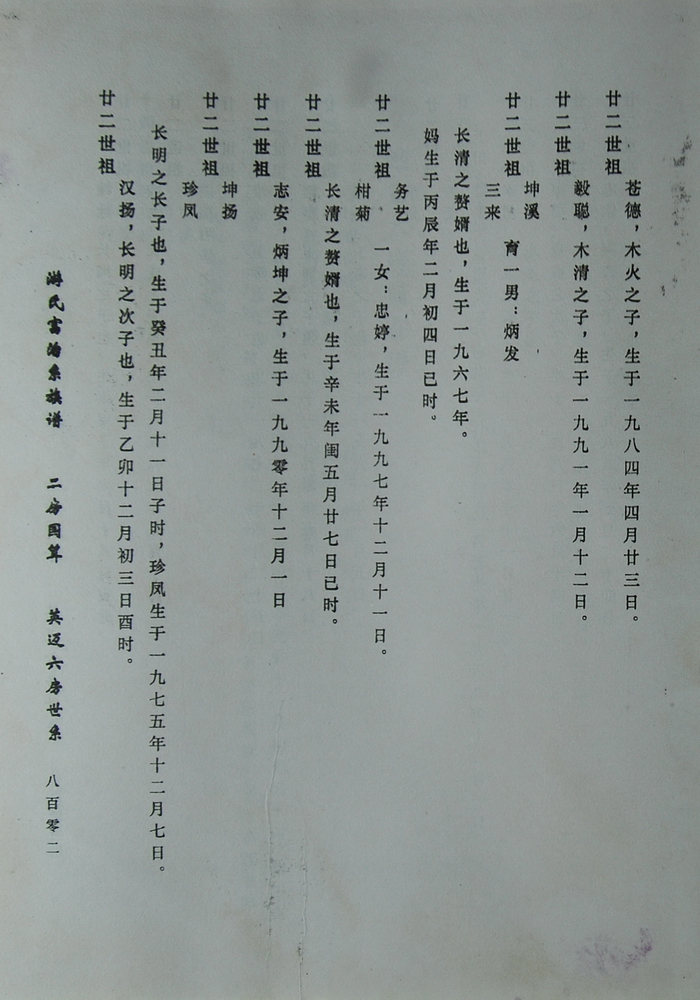 廿二世祖
苍德，木火之子，生于一九八四年四月廿三日。
廿二世祖
毅聪，木清之子，生于一九九一年一月十二日。
廿二世祖
坤溪
三来
育一男：炳发
长清之赘婿也，生于一九六七年。
妈生于丙辰年二月初四日已时。
廿二世祖
务艺
柑菊
一女：忠婷，生于一九九七年十二月十一日。
廿二世祖
长清之赘婿也，生于辛未年闰五月廿七日已时。
廿二世祖
志安，炳坤之子，生于一九九零年十二月一日
廿二世祖
坤扬
珍凤
长明之长子也，生于癸丑年二月十一日子时，珍凤生于一九七五年十二月七日。
廿二世祖
汉扬，长明之次子也，生于乙卯十二月初三日酉时。
游氏富 系族谱 二房国 英迈六房世系 八百零二